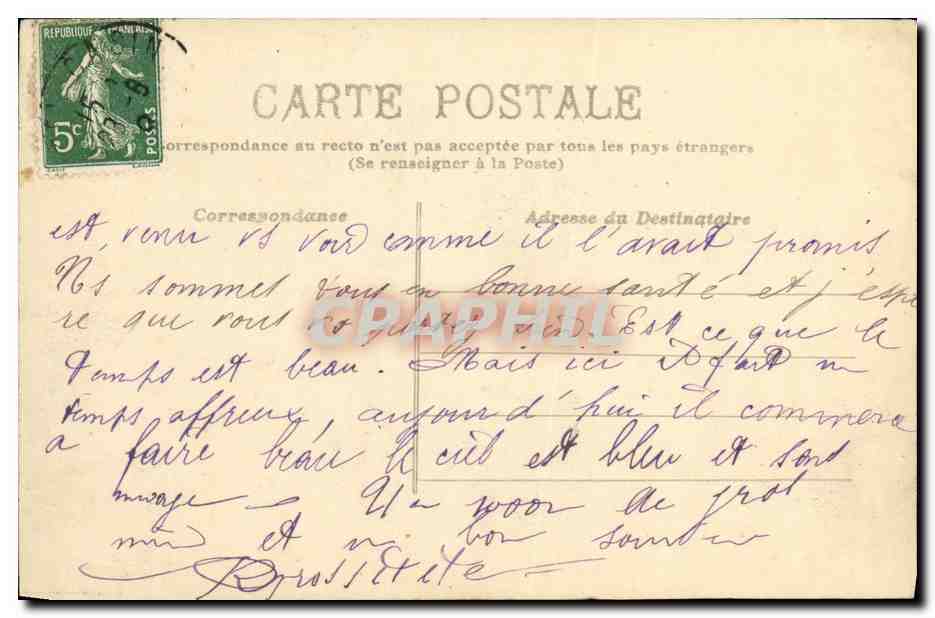 REPUBLIQUE FRANÇAISE
5c
POSTES
15
CARTE POSTALE
orrespondance au recto n'est pas acceptée par tous les pays étrangers
(Se renseigner à la Poste)
Correspondance
Adresse du Destinataire
est, venu vs voir comme il l'avait promis
Ns sommes tous en bonne santé et j'espè
re que vous Est ce que le
temps est beau. Mais ici il fait un
temps affreux, aujourd'hui il commence
a faire beau le ciel est bleu et sans
nuage - Un de
et un bon
CPAPHIL